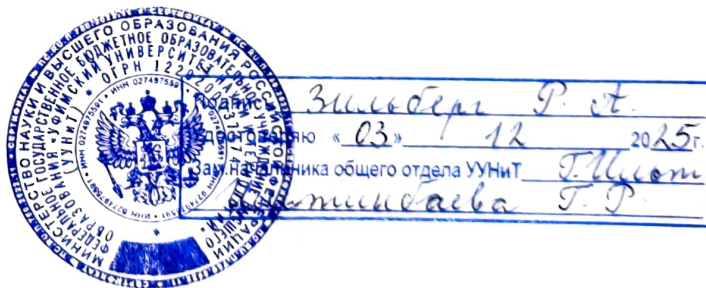 МИНИСТЕРСТВО НАУКИ И ВЫСШЕГО ОБРАЗОВАНИЯ РОССИЙСКОЙ ФЕДЕРАЦИИ
ФЕДЕРАЛЬНОЕ ГОСУДАРСТВЕННОЕ БЮДЖЕТНОЕ ОБРАЗОВАТЕЛЬНОЕ УЧРЕЖДЕНИЕ ВЫСШЕГО
ОБРАЗОВАНИЯ «УФИМСКИЙ УНИВЕРСИТЕТ НАУКИ И ТЕХНОЛОГИЙ»
(УУНиТ) * ОГРН
ИНН 0274975591
Подпись Зильберг Р. А.
Удостоверяю «03» 12 2025г.
Зам.начальника общего отдела УУНиТ
Г. Р.